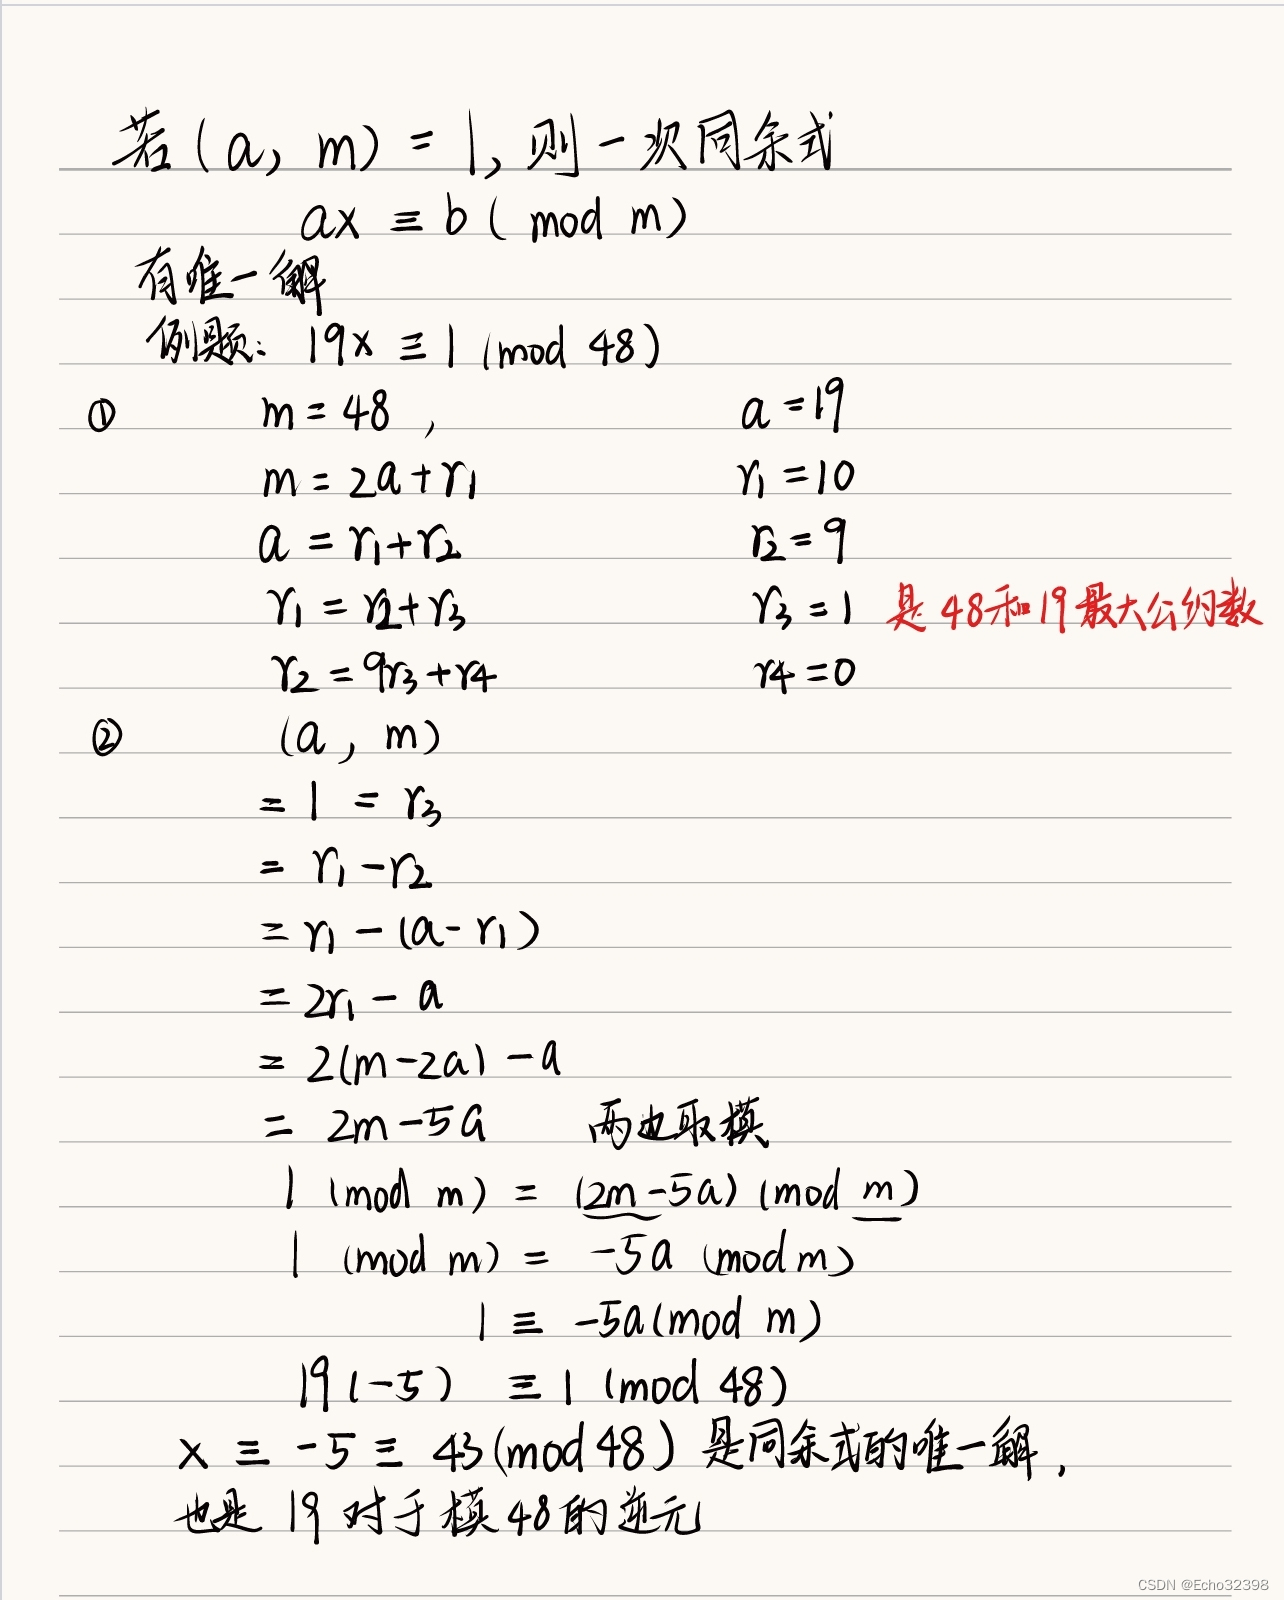 若(a, m) = 1, 则一次同余式
ax ≡ b ( mod m)
有唯一解
例题: 19x ≡ 1 (mod 48)
① m = 48 , a = 19
m = 2a + r1 r1 = 10
a = r1 + r2 r2 = 9
r1 = r2 + r3 r3 = 1 是 48和19最大公约数
r2 = 9r3 + r4 r4 = 0
② (a , m)
= 1 = r3
= r1 - r2
= r1 - (a - r1)
= 2r1 - a
= 2(m - 2a) - a
= 2m - 5a 两边取模
1 (mod m) = (2m - 5a) (mod m)
1 (mod m) = -5a (mod m)
1 ≡ -5a (mod m)
19 (-5) ≡ 1 (mod 48)
x ≡ -5 ≡ 43 (mod 48) 是同余式的唯一解,
也是 19 对于模 48 的逆元
CSDN @Echo32398